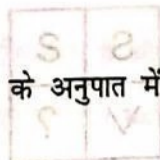 के अनुपात में